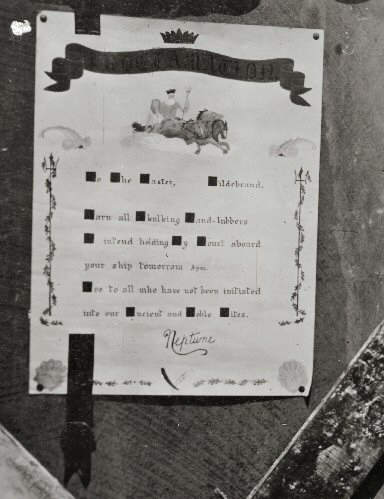 PROCLAMATION
To The Master, Hildebrand.
Warn all Skulking Land-lubbers
I intend holding My Court aboard
your ship tomorrow 3pm.
Woe to all who have not been initiated
into our Ancient and Noble Rites.
Neptune